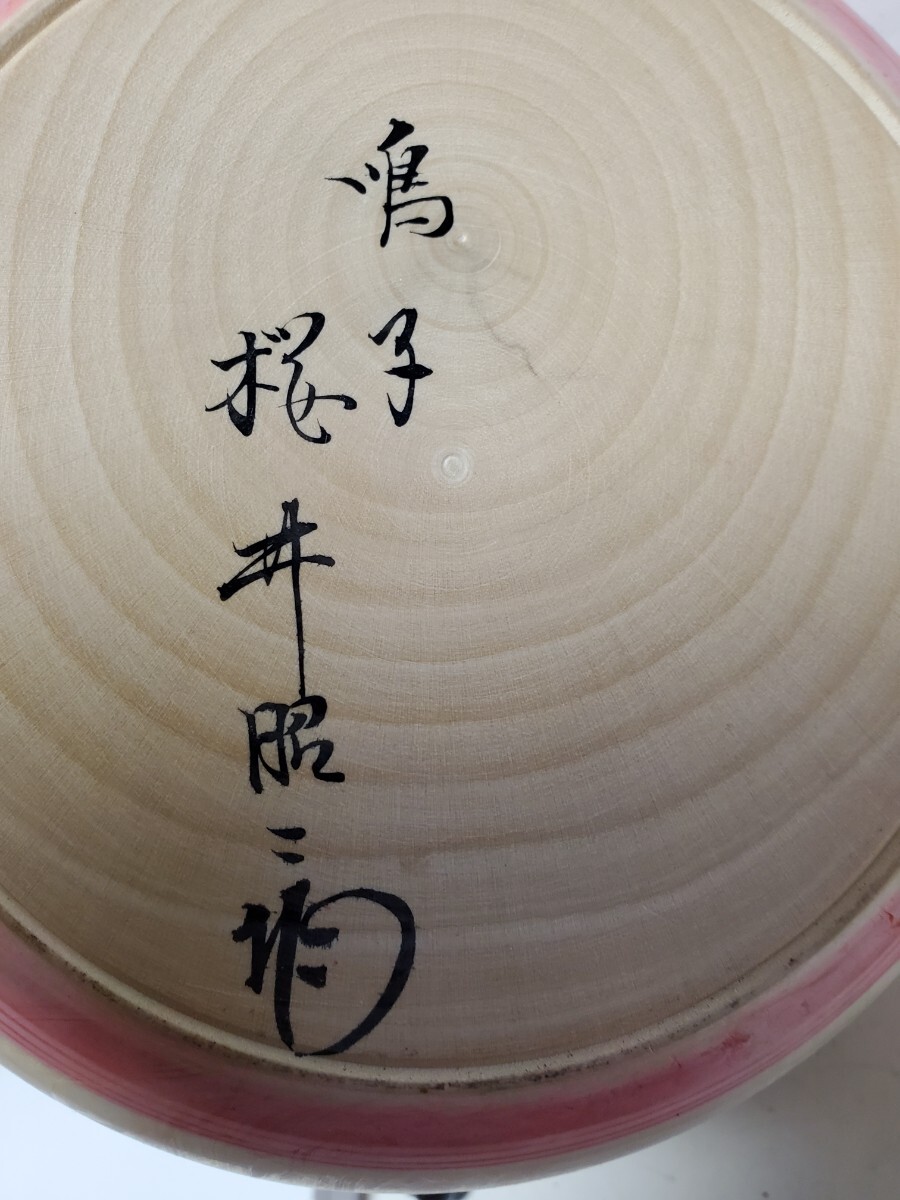 鳴子
桜井昭二作